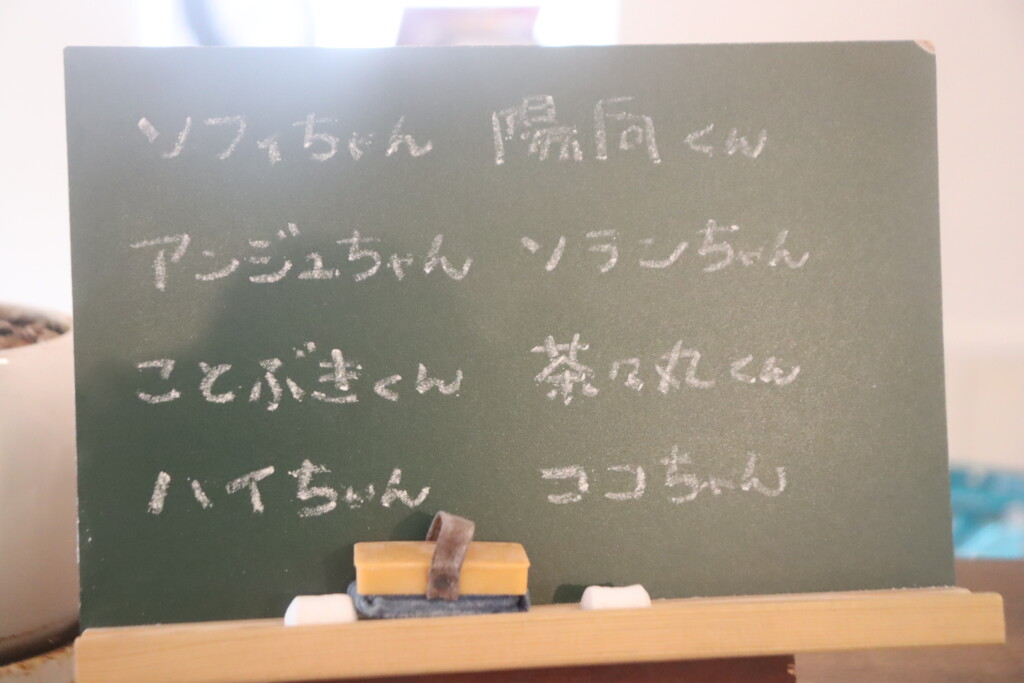 ソフィちゃん 陽向くん
アンジュちゃん ソランちゃん
ことぶきくん 茶々丸くん
ハイちゃん ココちゃん